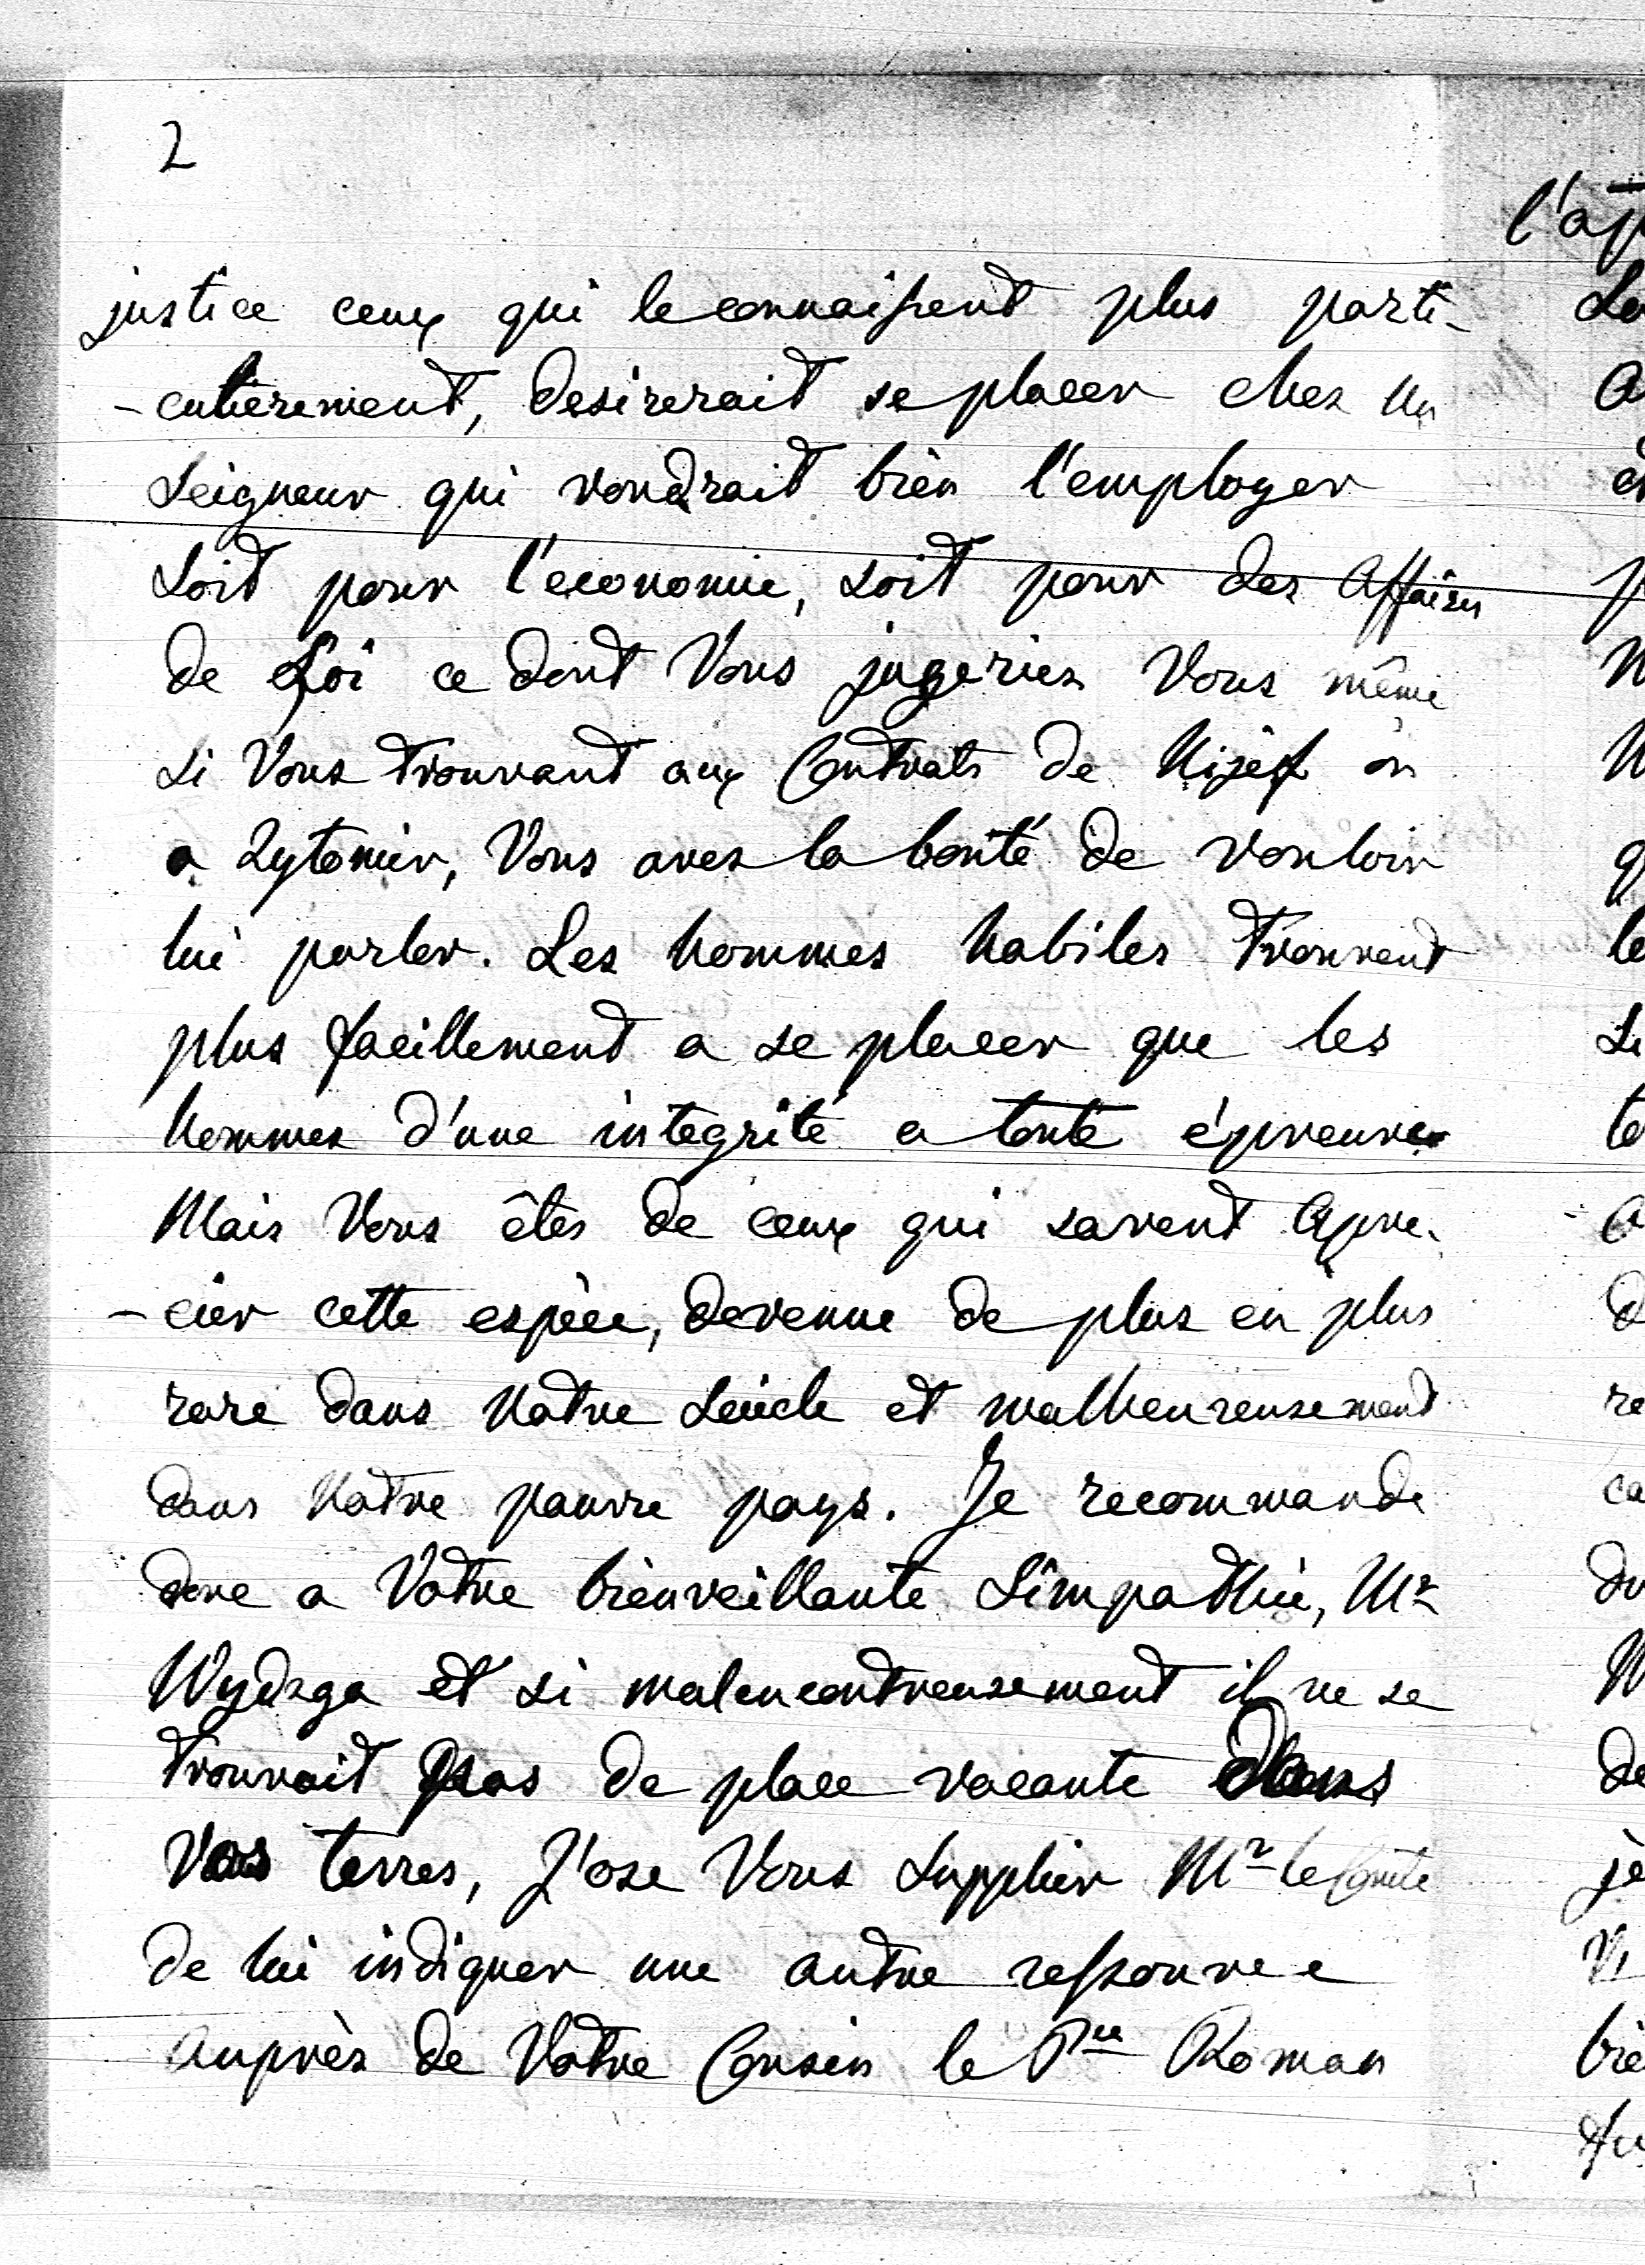 2
justice ceux qui le connaissent plus parti-
-culièrement, desirerait se placer chez un
Seigneur qui voudrait bien l'employer
Soit pour l'economie, soit pour des Affaires
de Loi ce dont Vous jugeriez Vous même
si Vous trouvant aux Contrats de Kijef ou
a Zytomir, Vous avez la bonté de vouloir
lui parler. Les hommes habiles trouvent
plus facillement a se placer que les
hommes d'une integrité a toute épreuve
Mais Vous êtes de ceux qui savent Apre-
-cier cette espèce, devenue de plus en plus
rare dans Notre Siècle et malheureusement
dans Notre pauvre pays. Je recommande
donc a Votre bienveillante Simpathie, Mr
Wydzga et si malencontreusement il ne se
trouvait pas de place vacante dans
Vos terres, J'ose Vous supplier Mr le Comte
de lui indiquer une autre ressource
Auprès de Votre Cousin le Pce Roman